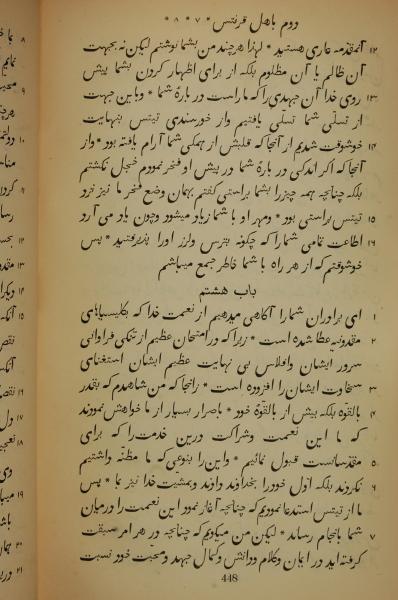 دوم باهل قرنتس * ۷ * ۸ *
۱۲ آنمقدمه عاری هستید * لهذا هرچند من بشما نوشتم لیکن نه بجهت
آن ظالم یا آن مظلوم بلکه از برای اظهار کردن بشما پیش
۱۳ روی خدا آن جهدی را که ما راست در بارهٔ شما * و باین جهت
از تسلّی شما تسلّی یافتیم واز خورسندی تیتس بنهایت
خوشوقت شدیم از آنجا که قلبش از همکی شما آرام یافته بود *
۱۴ واز آنجا که اکر اندکی در بارهٔ شما در پیش او فخر نمودم خجل نکشتم
بلکه چنانچه همه چیز را بشما براستی کفتم بهمان وضع فخر ما نیز نزد
۱۵ تیتس براستی بود * ومهر او با شما زیاد میشود وچون یاد می آرد
۱۶ اطاعت تمامی شما را که چکونه بترس ولرز اورا پذیرفتید * پس
خوشوقتم که از هر راه با شما خاطر جمع میباشم
باب هشتم
۱ ای برادران شما را آکاهی میدهیم از نعمت خدا که بکلیسیاهای
۲ مقدونیه عطا شده است * زیرا که در امتحان عظیم از تنکی فراوانی
سرور ایشان وافلاس بی نهایت عظیم ایشان استغنای
۳ سخاوت ایشان را افزوده است * زانجا که من شاهدم که بقدر
۴ بالقوّه بلکه بیش از بالقوّهٔ خود * باصرار بسیار از ما خواهش نمودند
که ما این نعمت وشراکت درین خدمت را که برای
۵ مقدسانست قبول نمائیم * واین را بنوعی که ما مظنّه داشتیم
۶ نکردند بلکه اوّل خود را بخداوند دادند وبمشیت خدا نیز بما * پس
ما از تیتس استدعا نمودیم که چنانچه آغاز نمود این نعمت را درمیان
۷ شما بانجام رساند * لیکن من میکویم که چنانچه در هر امر سبقت
کرفته اید در ایمان وکلام ودانش وکمال جهد ومحبّت خود نسبت
448